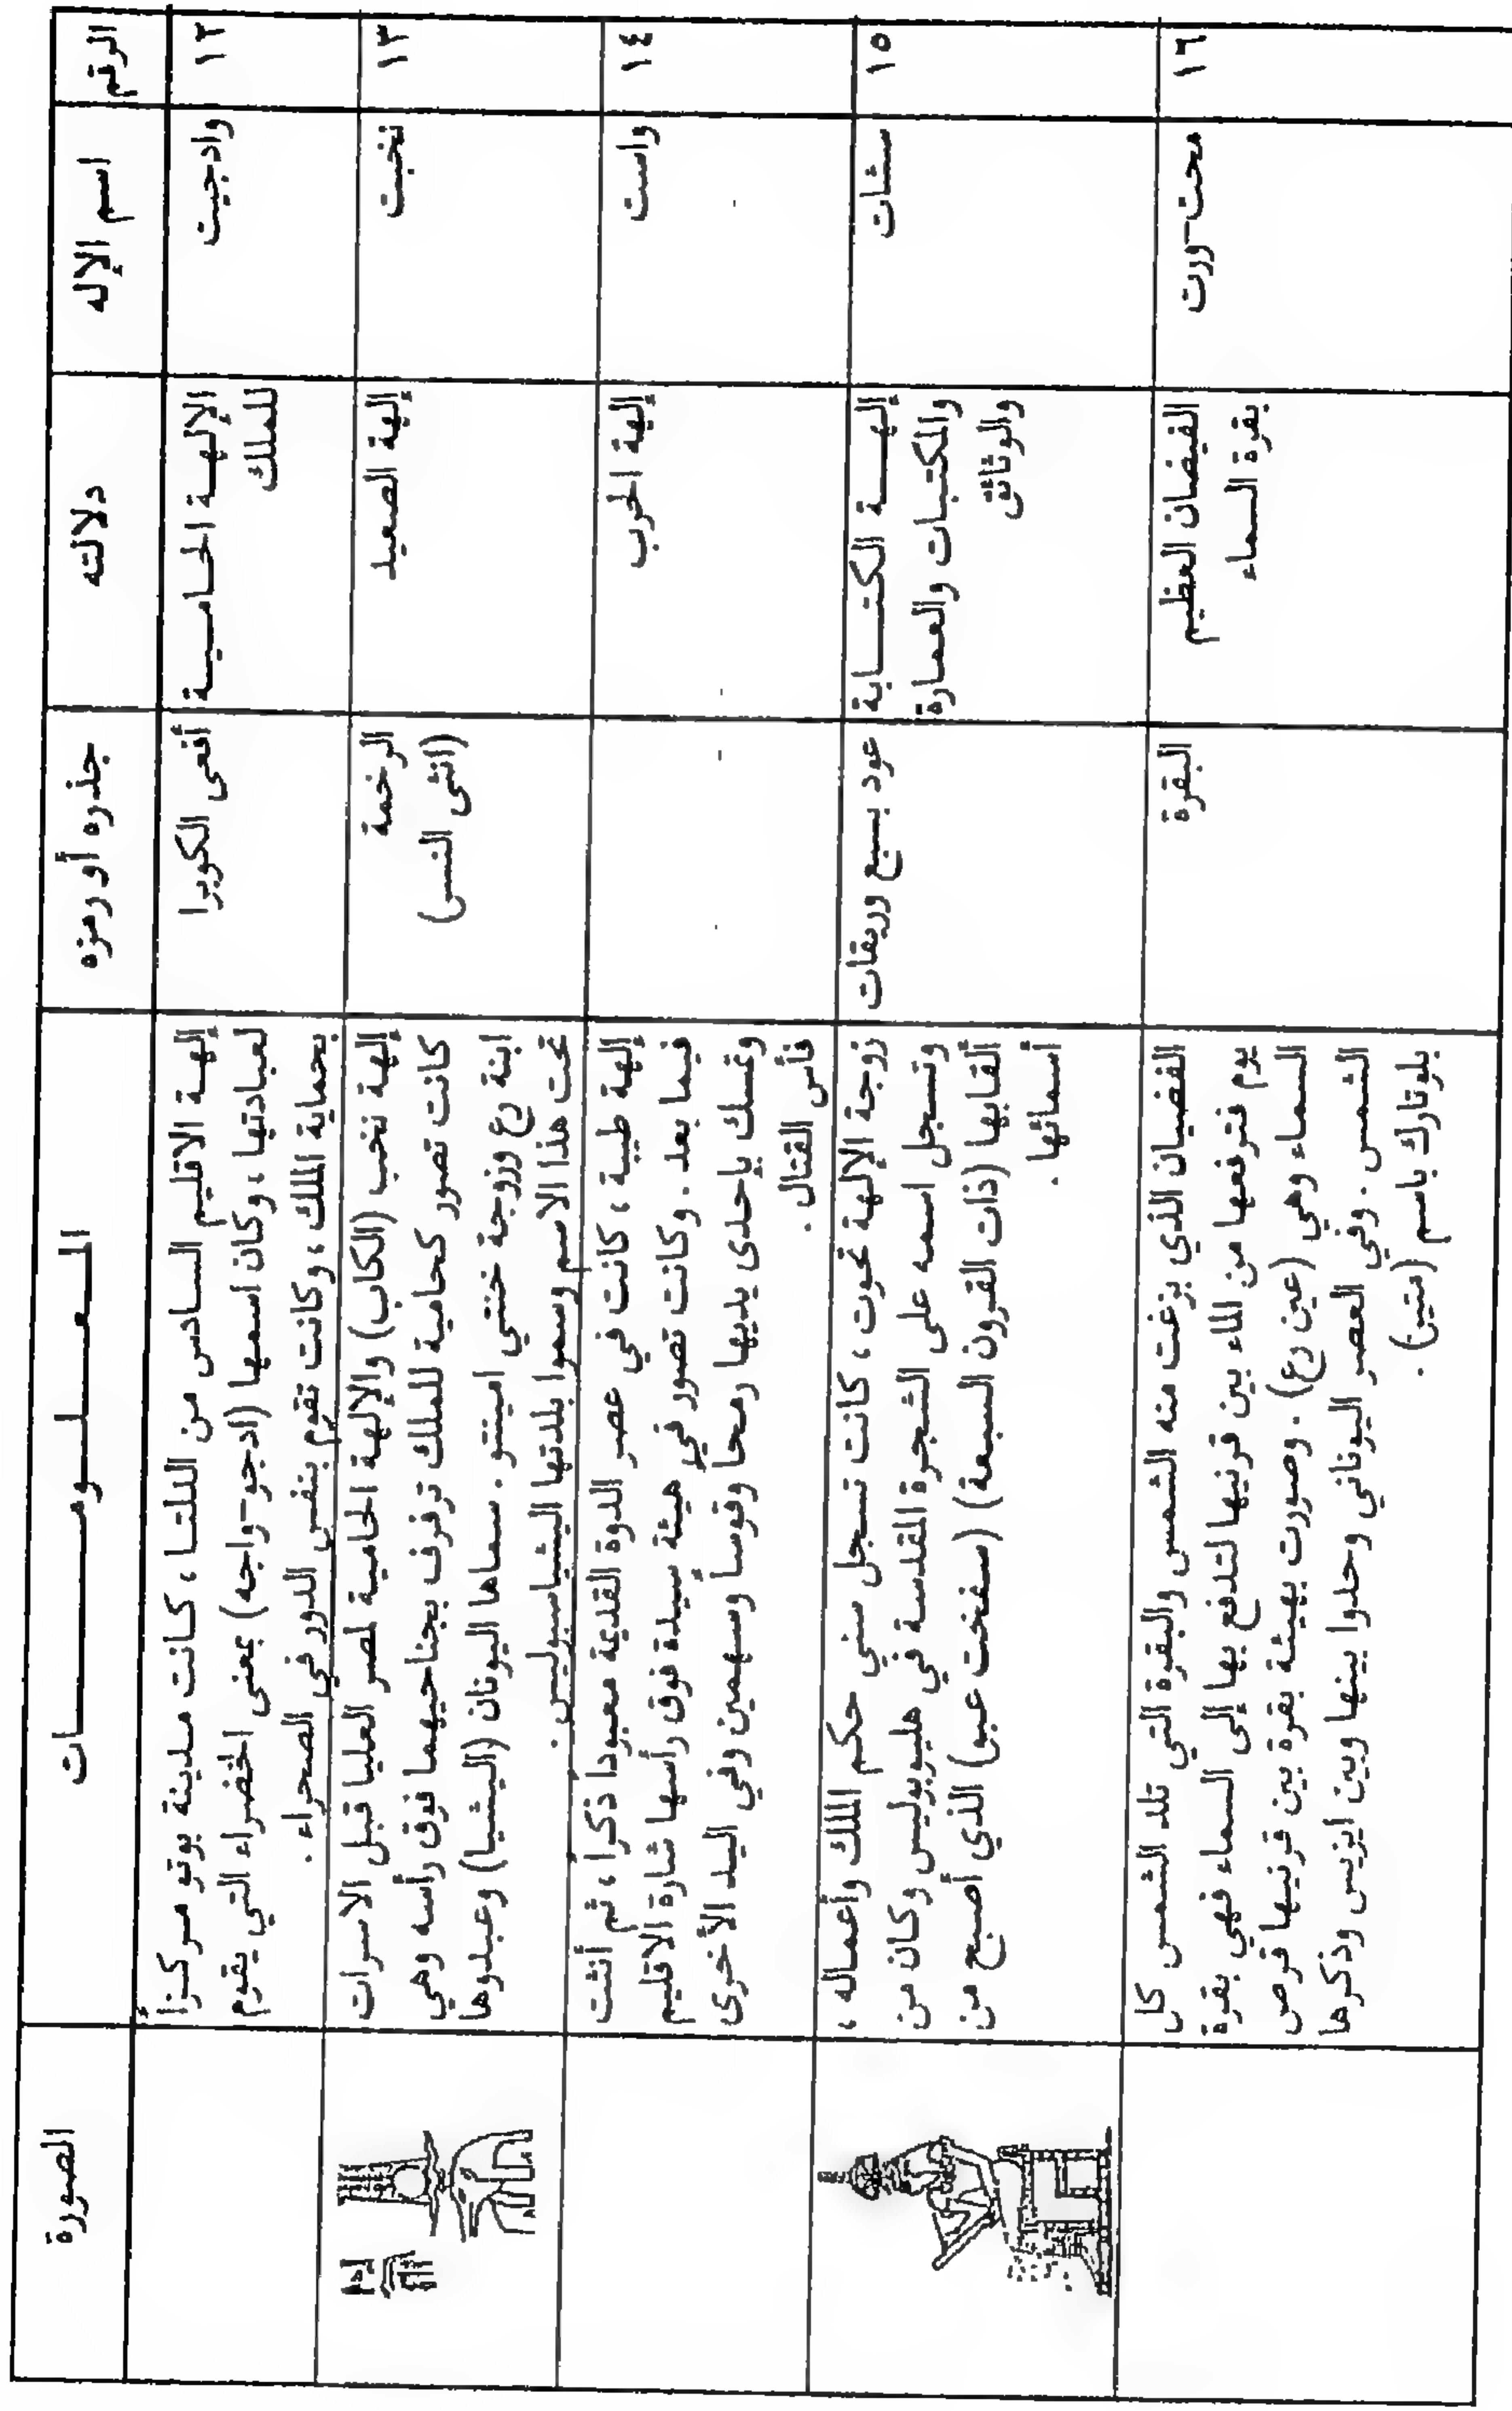 الرقم
اسم الإله
دلالته
جذره أو رمزه
المعلومات
الصورة
١٢
وادجيت
الإلهة الحامية
للملك
أفعى الكوبرا
إلهة الاقليم السادس من الدلتا ، كانت مدينة بوتو مركزاً
لعبادتها ، وكان اسمها (ادجو-واجه) بمعنى الخضراء التي يقوم
بحماية الملك ، وكانت تقوم بنفس الدور في الصحراء .
١٣
نخبت
إلهة الصعيد
الرخمة
(انثى النسر)
إلهة نخب (الكاب) والإلهة الحامية لمصر العليا قبل الاسرات
كانت تصور كحامية للملك ترفرف بجناحيهما فوق رأسه وهي
ابنة رع وزوجة خنتي امينتو . سماها اليونان (اليثيا) وعبدوها
تحت هذا الاسم وسموا بلدتها اليثياسبوليس .
١٤
واست
إلهة الحرب
إلهة طيبة ، كانت في عصر الدوة القديمة معبودا ذكرا ، ثم أنثت
فيما بعد . وكانت تصور في هيئة سيدة فوق رأسها شارة الاقليم
وتمسك بإحدى يديها رمحاً وقوساً وسهمين وفي اليد الأخرى
فأس القتال .
١٥
سشات
إلهة الكتابة
والمكتبات والعمارة
والوثائق
عود بسبع وريقات
زوجة الإلهة تحوت ، كانت تسجل سني حكم الملك وأعماله ،
وتسجل اسمه على الشجرة المقدسة في هليوبوليس وكان من
ألقابها (ذات القرون السبعة) (سفخت عبو) الذي أصبح من
أسمائها .
١٦
محت-ورت
الفيضان العظيم
بقرة السماء
البقرة
الفضيان الذي بزغت منه الشمس والبقرة التي تلد الشمس كل
يوم فترفعها من الماء بين قرنيها لتدفع بها إلى السماء فهي بقرة
السماء وهي (عين رع) . وصورت بهيئة بقرة بين قرنيها قرص
الشمس . وفي العصر اليوناني وحدوا بينها وبين ايزيس وذكرها
بلوتارك باسم (متير) .